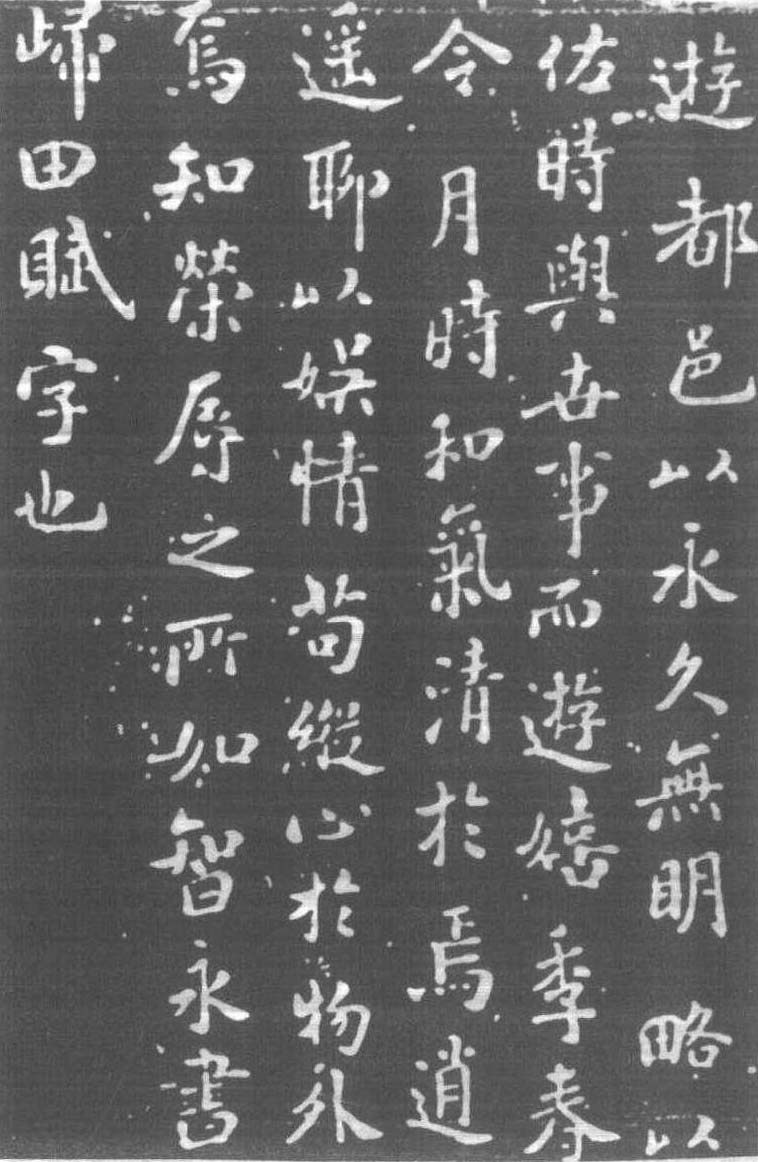 遊都邑以永久無明略以
佐時與世事而遊嬉季春
令月時和氣清於焉逍
遥聊以娱情苟縱心於物外
焉知榮辱之所如智永書
歸田賦字也